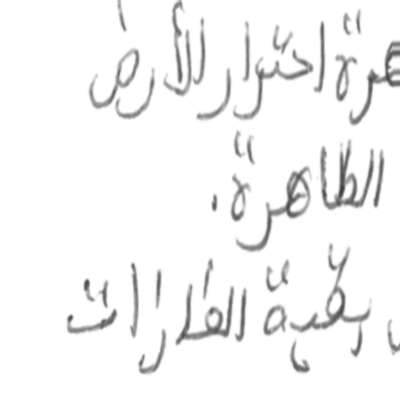 هرة احترار للأرض
الظاهرة .
بقية الغازات